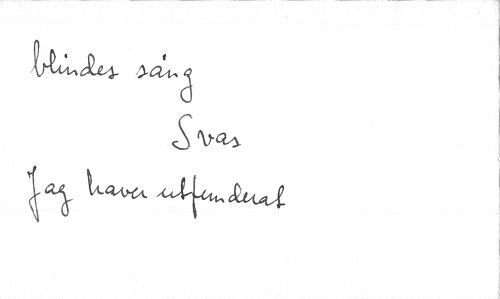 blindes sång
Svas
Jag haver utfunderat